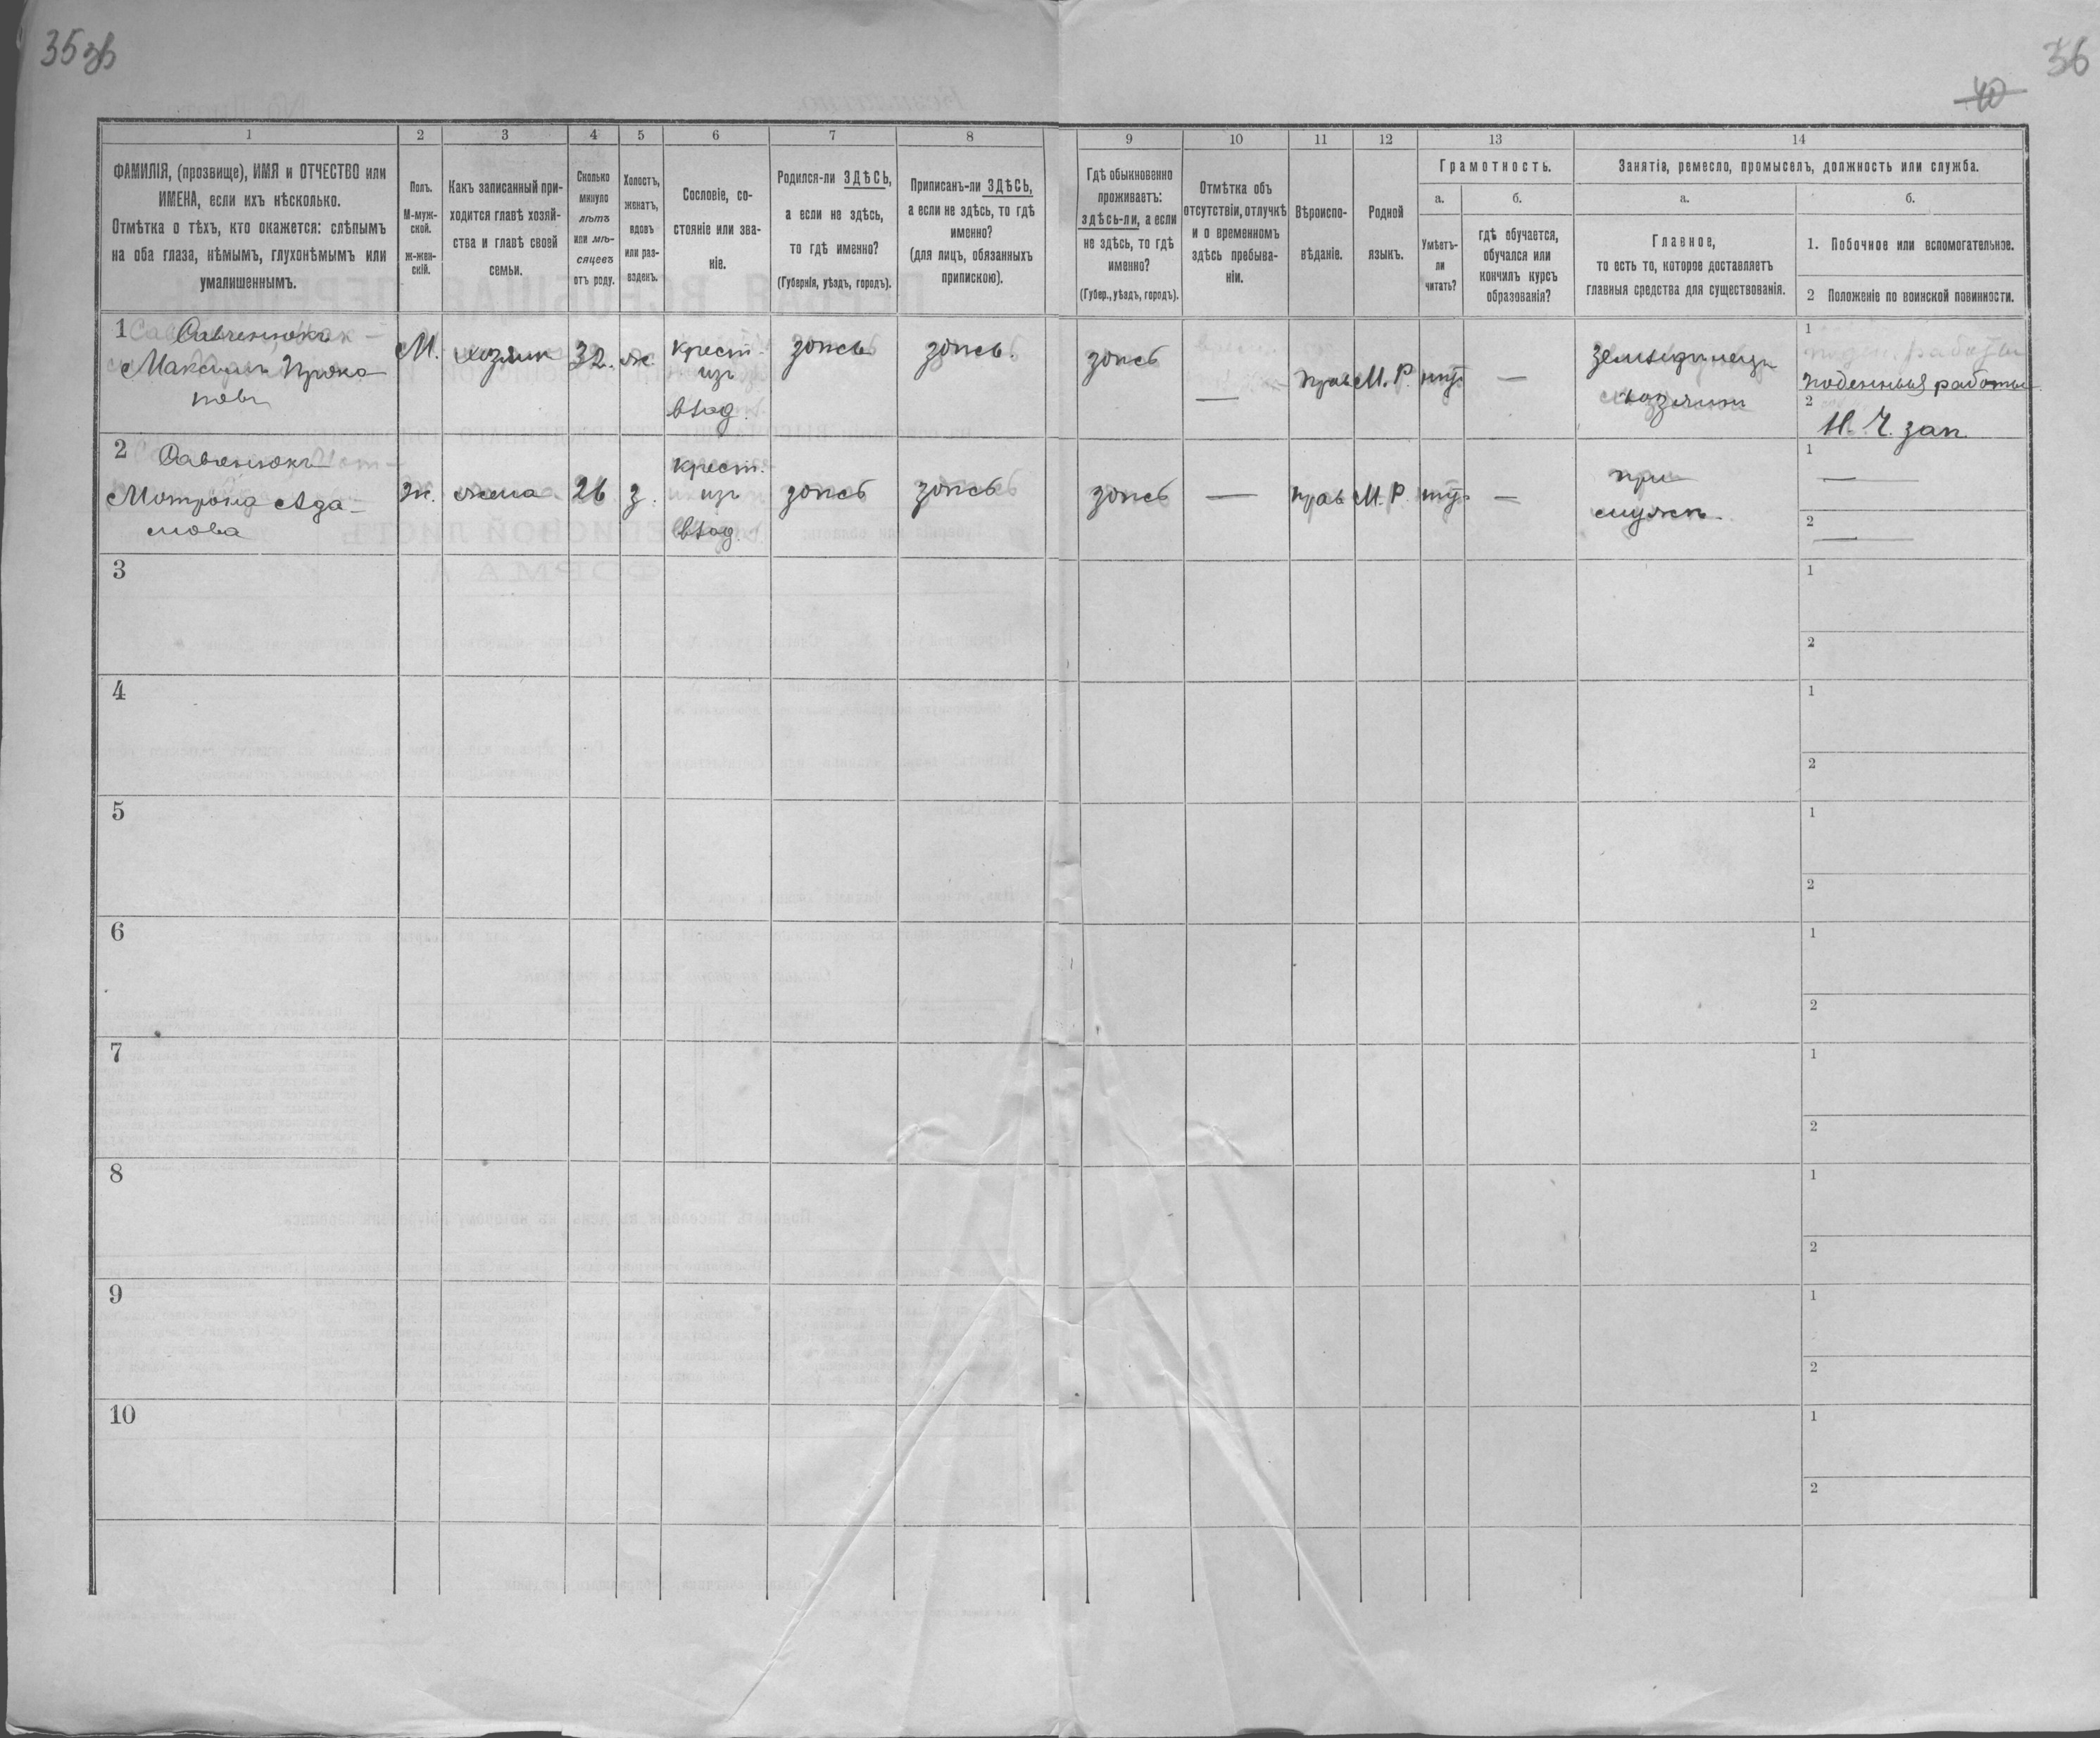 35 зв
36
40
1
2
3
4
5
6
7
8
9
10
11
12
13
14
ФАМИЛІЯ, (прозвище), ИМЯ и ОТЧЕСТВО или
ИМЕНА, если ихъ нѣсколько.
Отмѣтка о тѣхъ, кто окажется: слѣпымъ
на оба глаза, нѣмымъ, глухонѣмымъ или
умалишеннымъ.
Полъ.
М-муж-
ской.
ж-жен-
скій.
Какъ записанный при-
ходится главѣ хозяй-
ства и главѣ своей
семьи.
Сколько
минуло
лѣтъ
или мѣ-
сяцевъ
отъ роду.
Холостъ,
женатъ,
вдовъ
или раз-
веденъ.
Сословіе, со-
стояніе или зва-
ніе.
Родился-ли ЗДѢСЬ,
а если не здѣсь,
то гдѣ именно?
(Губернія, уѣздъ, городъ).
Приписанъ-ли ЗДѢСЬ,
а если не здѣсь, то гдѣ
именно?
(для лицъ, обязанныхъ
припискою).
Гдѣ обыкновенно
проживаетъ:
здѣсь-ли, а если
не здѣсь, то гдѣ
именно?
(Губер., уѣздъ, городъ).
Отмѣтка объ
отсутствіи, отлучкѣ
и о временномъ
здѣсь пребыва-
ніи.
Вѣроиспо-
вѣданіе.
Родной
языкъ.
Грамотность.
а.
Умѣетъ-
ли
читать?
б.
гдѣ обучается,
обучался или
кончилъ курсъ
образованія?
Занятія, ремесло, промыселъ, должность или служба.
а.
Главное,
то есть то, которое доставляетъ
главныя средства для существованія.
б.
1. Побочное или вспомогательное.
2 Положеніе по воинской повинности.
1 Савченюкъ
Максимъ Проко
повъ
М.
хозяин
32.
ж
крест.
изъ
влад.
здѣсь
здѣсь.
здѣсь
—
прав
М. Р.
нѣт
—
земледѣлецъ
хозяин
1
поденныя работы
2
Н. Ч. зап.
2 Савченюкъ
Мотрона Ада-
мова
ж.
жена
26
з.
крест.
изъ
влад.
здѣсь
здѣсь
здѣсь
—
прав
М. Р.
нѣт
—
при
мужѣ.
1
—
2
—
3
1
2
4
1
2
5
1
2
6
1
2
7
1
2
8
1
2
9
1
2
10
1
2